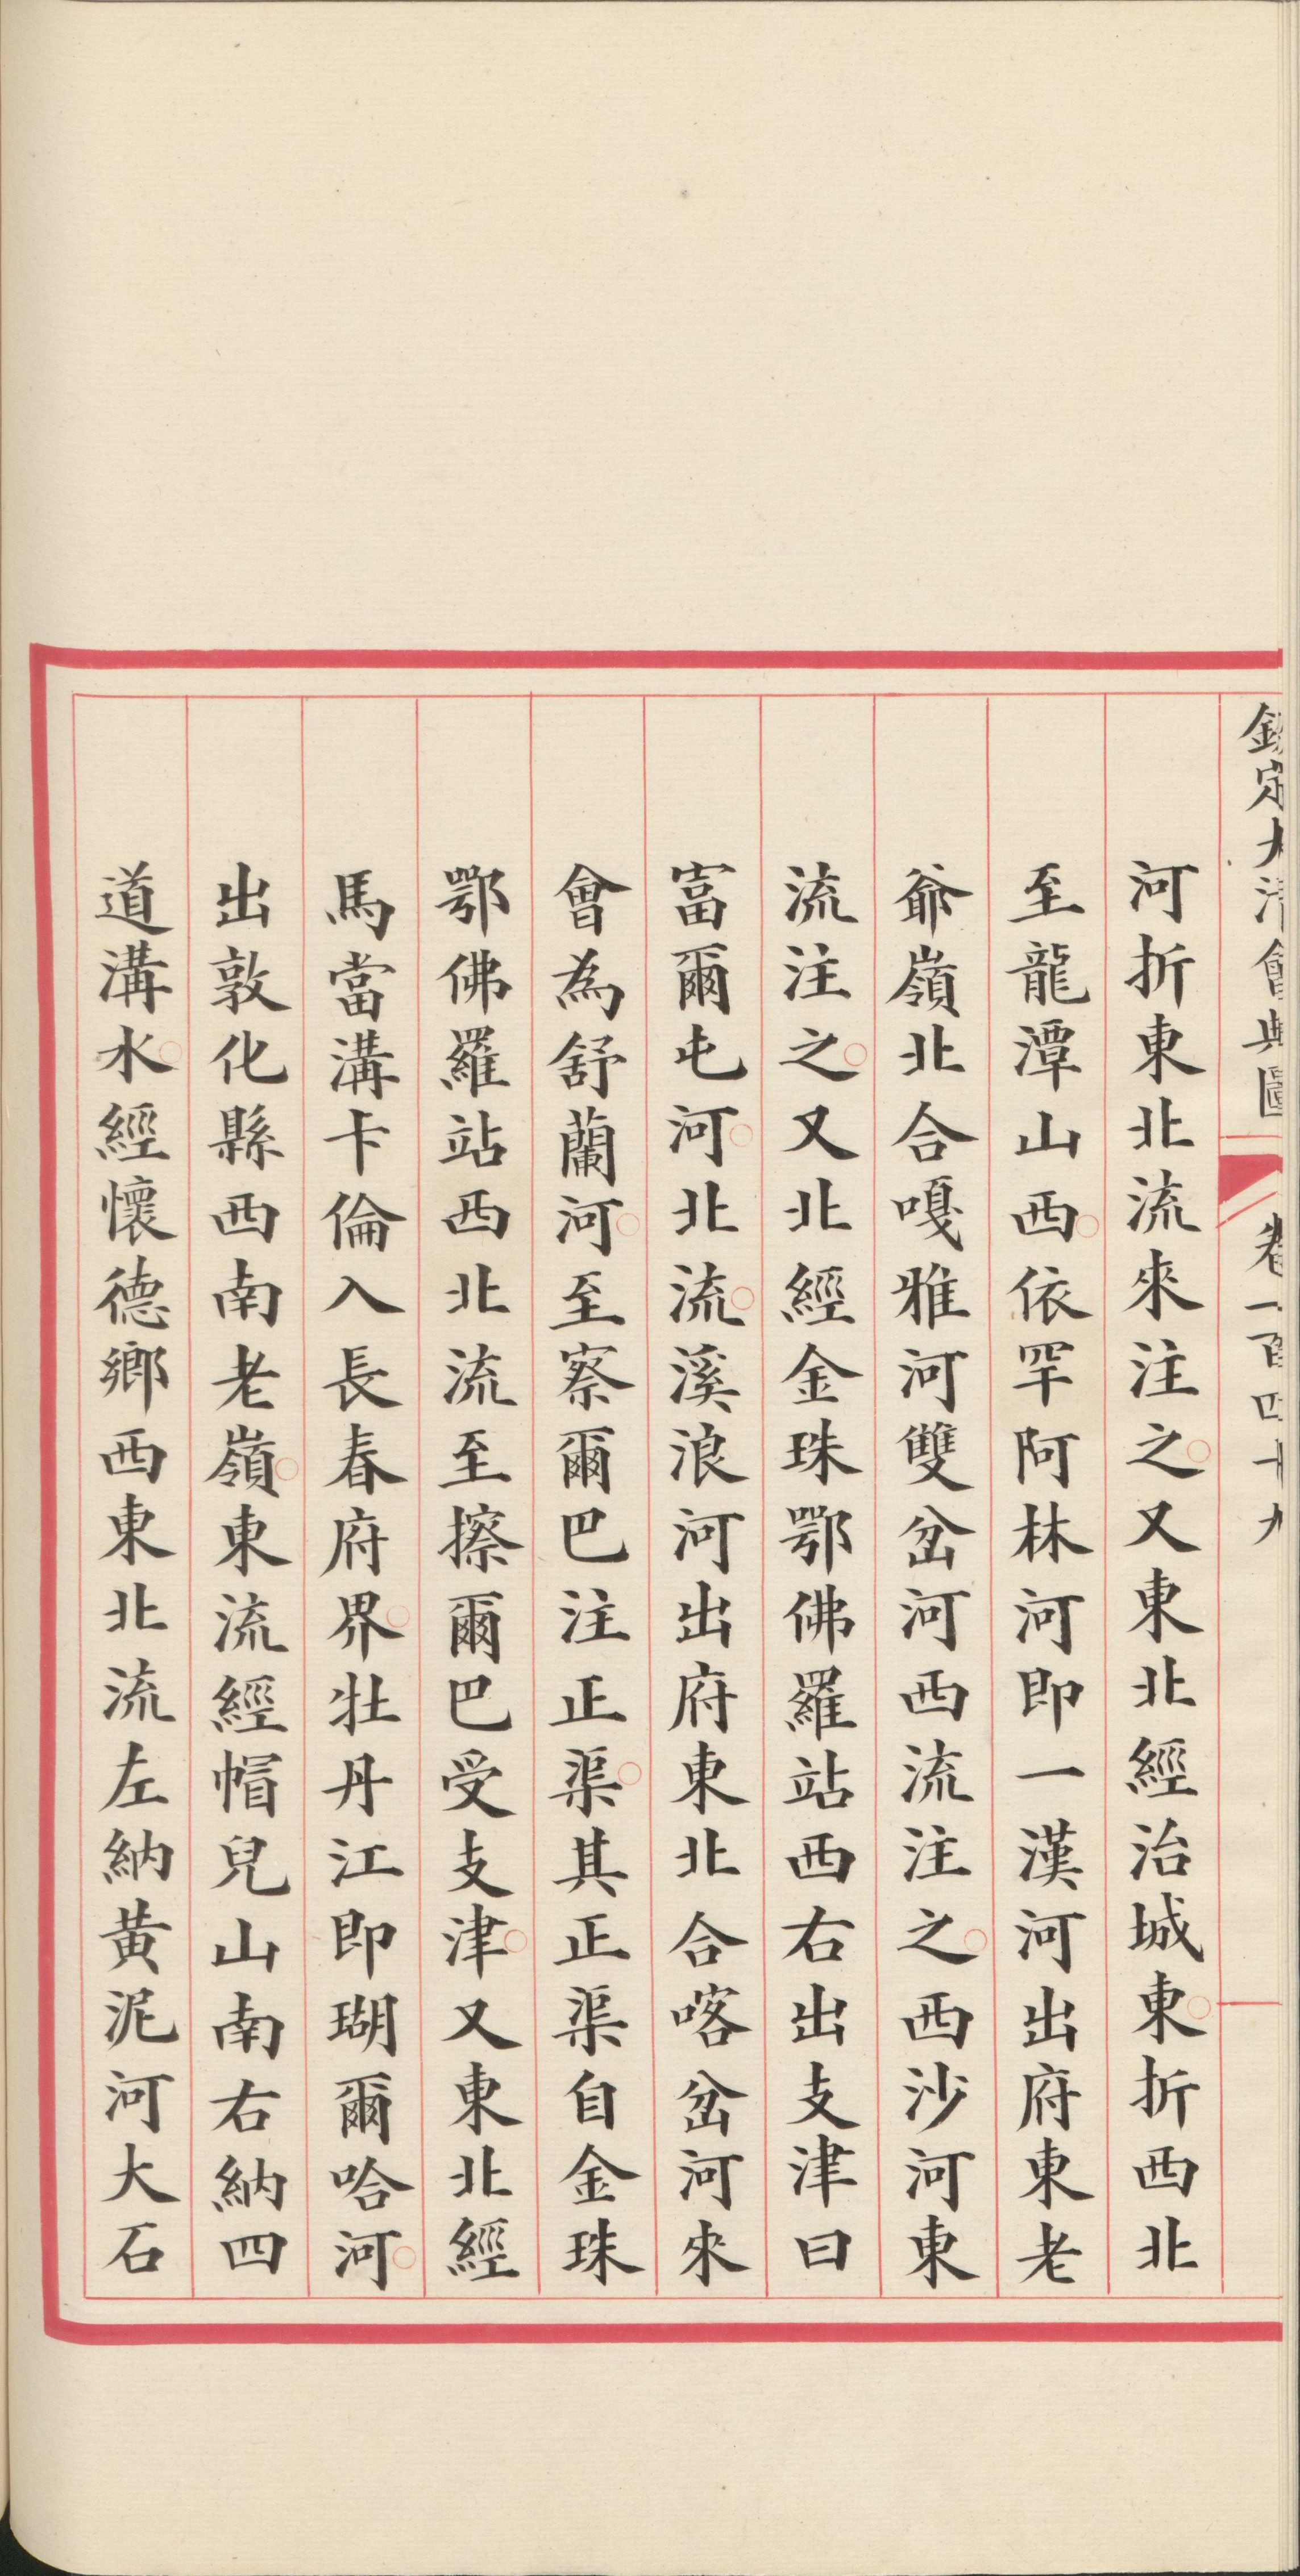 欽定大清會典圖 卷一百四十九
河折東北流來注之又東北經治城東折西北
至龍潭山西依罕阿林河即一漢河出府東老
爺嶺北合嘎雅河雙岔河西流注之西沙河東
流注之又北經金珠鄂佛羅站西右出支津曰
富爾屯河北流溪浪河出府東北合喀岔河來
會為舒蘭河至察爾巴注正渠其正渠自金珠
鄂佛羅站西北流至擦爾巴受支津又東北經
馬當溝卡倫入長春府界牡丹江即瑚爾哈河
出敦化縣西南老嶺東流經帽兒山南右納四
道溝水經懷德鄉西東北流左納黃泥河大石